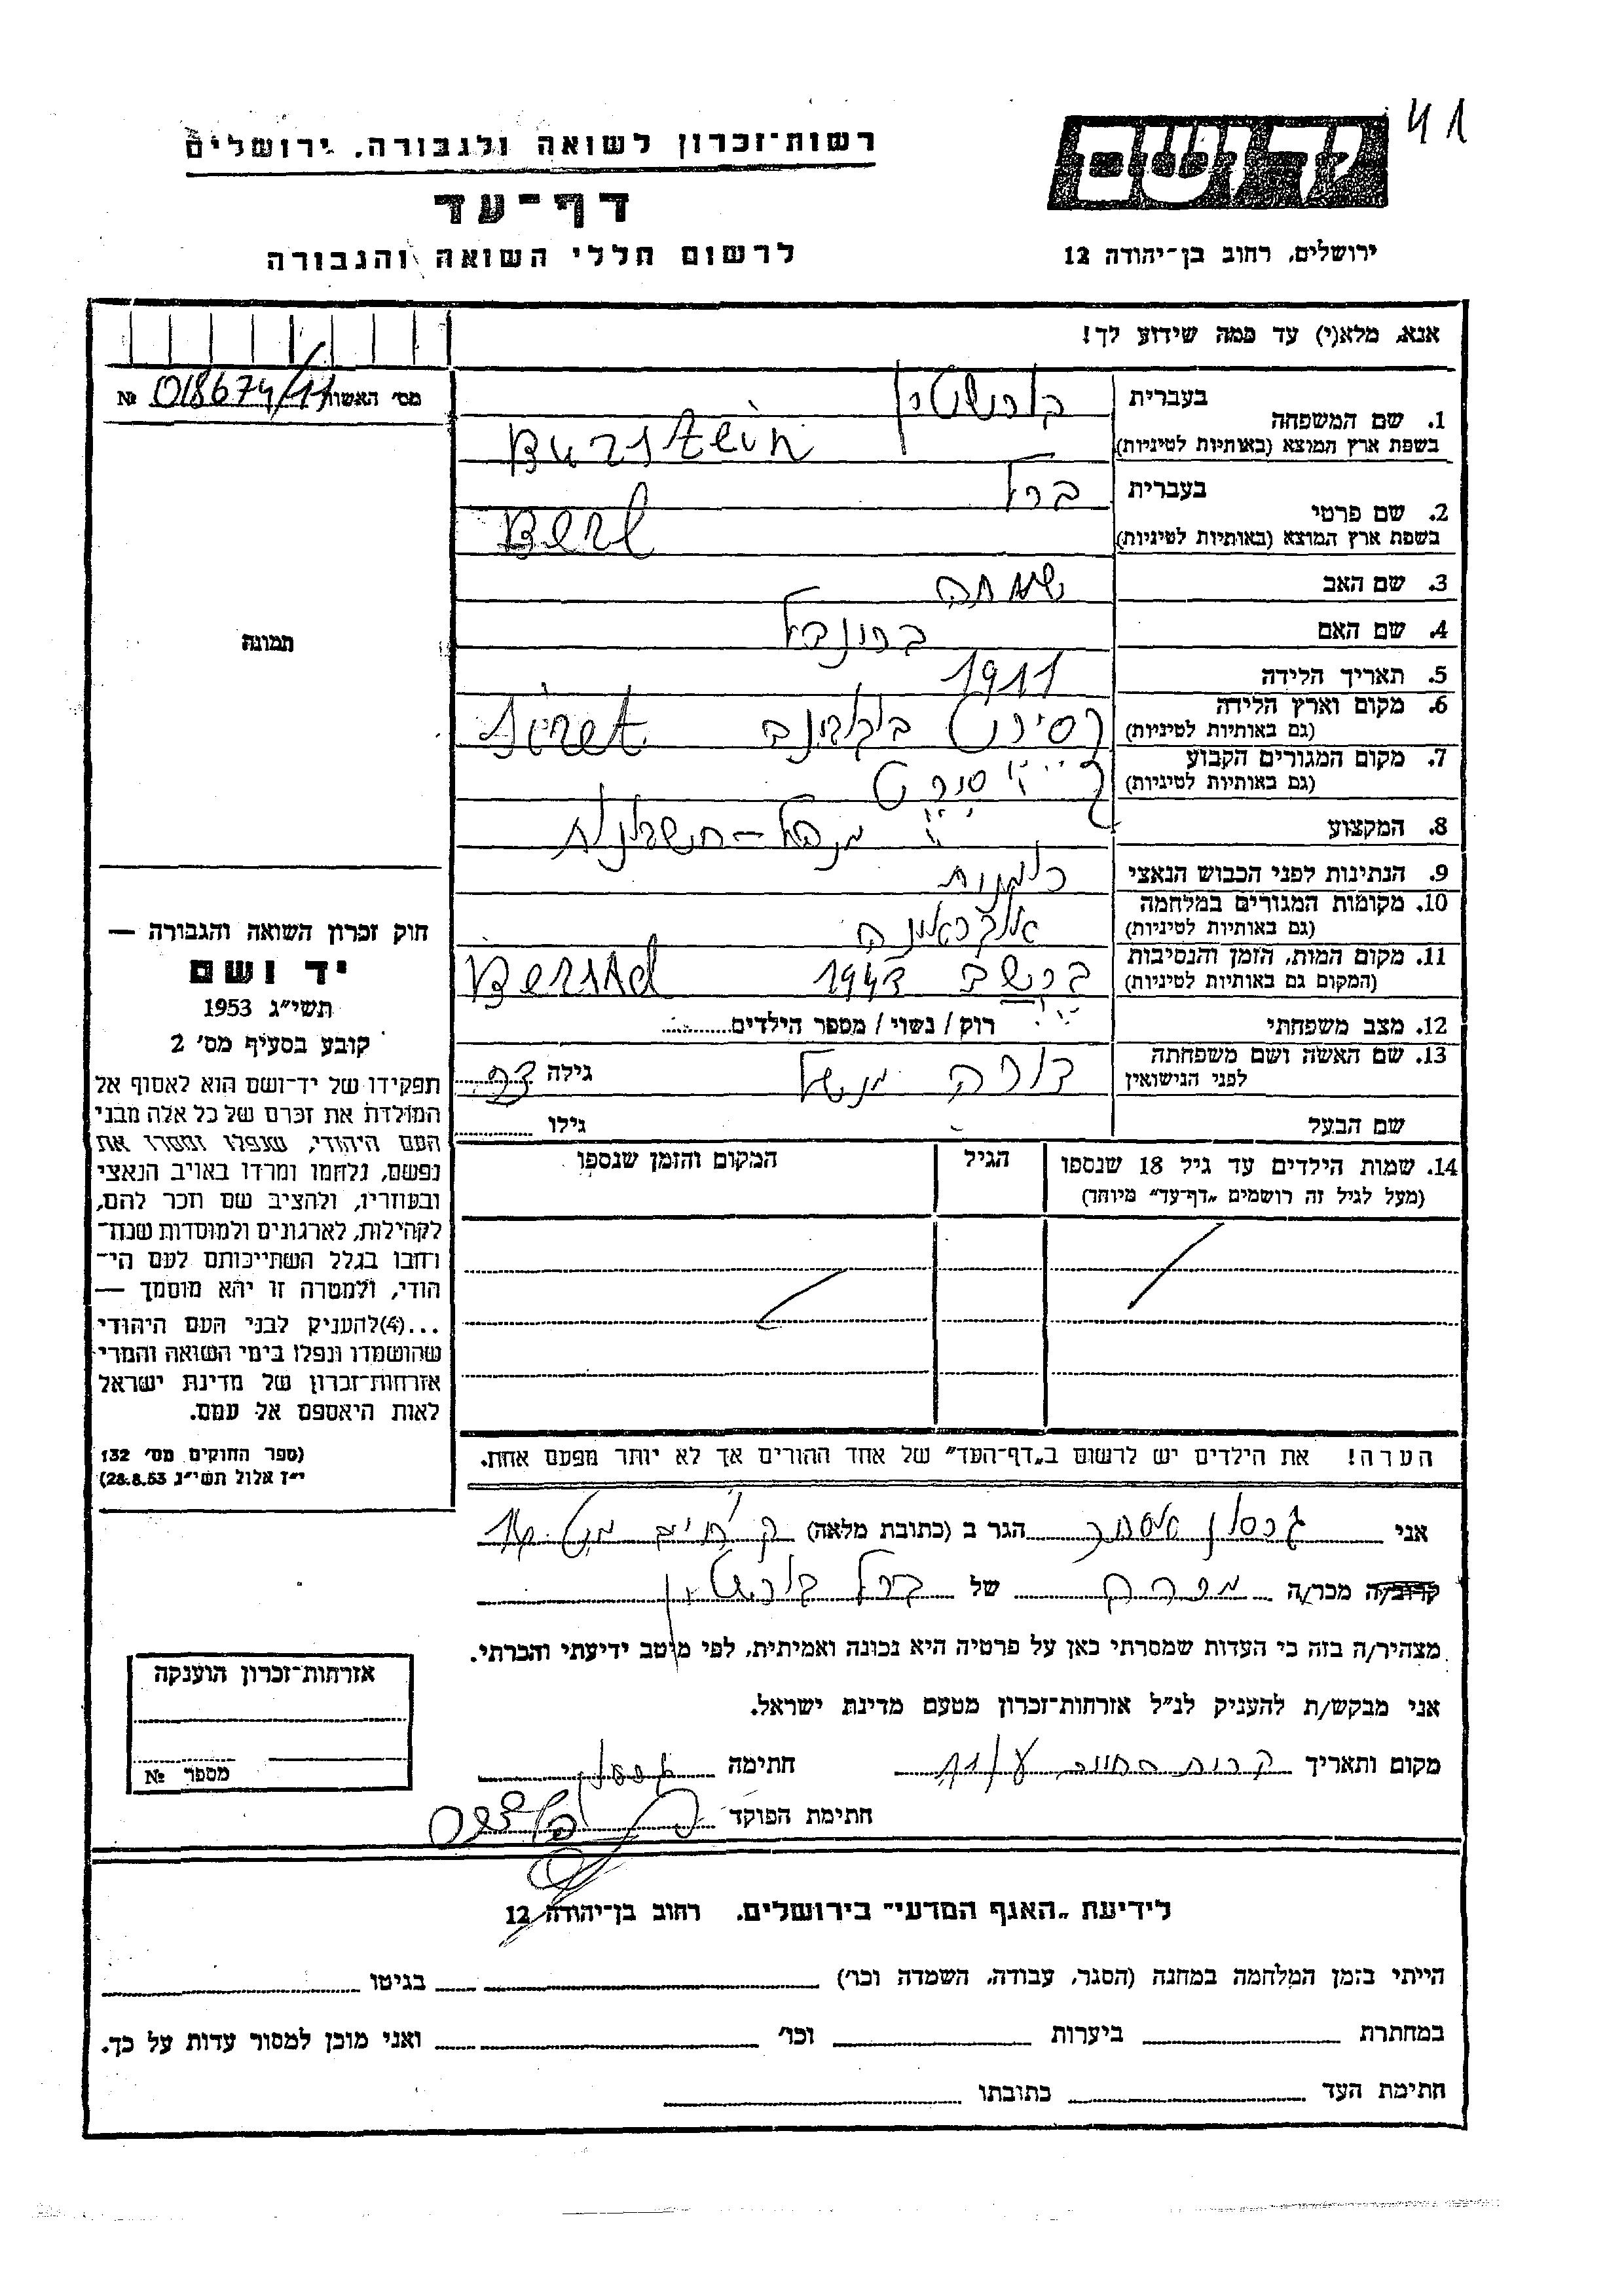 41
יד ושם
רשות־זכרון לשואה ולגבורה, ירושלים
דף־עד
לרשום חללי השואה והגבורה
ירושלים, רחוב בן־יהודה 12
אנא, מלא(י) עד כמה שידוע לך!
מס' האשה № 018674/11
תמונה
1. שם המשפחה בעברית בורשטיין
בשפת ארץ המוצא (באותיות לטיניות) Burstein
2. שם פרטי בעברית ברל
בשפת ארץ המוצא (באותיות לטיניות) Berl
3. שם האב שמחה
4. שם האם ברונדל
5. תאריך הלידה 1911
6. מקום וארץ הלידה (גם באותיות לטיניות) סירט בוקובינה Siret
7. מקום המגורים הקבוע (גם באותיות לטיניות) סירט
8. המקצוע
9. הנתינות לפני הכבוש הנאצי רומנית
10. מקומות המגורים במלחמה (גם באותיות לטיניות) אוקראינה
11. מקום המות, הזמן והנסיבות (המקום גם באותיות לטיניות) ברשד 1943 Bersad
12. מצב משפחתי רוק / נשוי / מספר הילדים
13. שם האשה ושם משפחתה לפני הנישואין דורה גילה
שם הבעל גילו
14. שמות הילדים עד גיל 18 שנספו הגיל המקום והזמן שנספו
(מעל לגיל זה רושמים „דף־עד" מיוחד)
הערה! את הילדים יש לרשום ב„דף־העד" של אחד ההורים אך לא יותר מפעם אחת.
חוק זכרון השואה והגבורה —
יד ושם
תשי"ג 1953
קובע בסעיף מס' 2
תפקידו של יד־ושם הוא לאסוף אל
המולדת את זכרם של כל אלה מבני
העם היהודי, שנפלו ומסרו את
נפשם, נלחמו ומרדו באויב הנאצי
ובעוזריו, ולהציב שם וזכר להם,
לקהילות, לארגונים ולמוסדות שנח־
רחבו בגלל השתייכותם לעם הי־
הודי, ולמטרה זו יהא מוסמך —
...(4)להעניק לבני העם היהודי
שהושמדו ונפלו בימי השואה והמרי
אזרחות־זכרון של מדינת ישראל
לאות היאספם אל עמם.
(ספר החוקים מס' 132
י"ז אלול תשי"ג 28.8.53)
אני אסתר הגר ב (כתובת מלאה)
קרוב/ה מכר/ה של ברל בורשטיין
מצהיר/ה בזה כי העדות שמסרתי כאן על פרטיה היא נכונה ואמיתית, לפי מיטב ידיעתי והכרתי.
אני מבקש/ת להעניק לנ"ל אזרחות־זכרון מטעם מדינת ישראל.
מקום ותאריך קרית חתימה
חתימת הפוקד
אזרחות־זכרון הוענקה
מספר №
לידיעת „האגף המדעי" בירושלים. רחוב בן־יהודה 12
הייתי בזמן המלחמה במחנה (הסגר, עבודה, השמדה וכו') בגיטו
במחתרת ביערות וכו' ואני מוכן למסור עדות על כך.
חתימת העד כתובתו